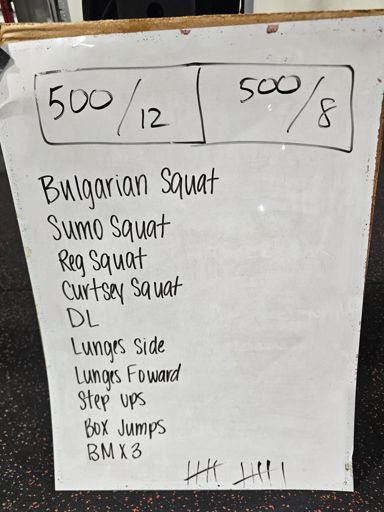 500/12 500/8
Bulgarian Squat
Sumo Squat
Reg Squat
Curtsey Squat
DL
Lunges Side
Lunges Foward
Step ups
Box Jumps
BM X 3